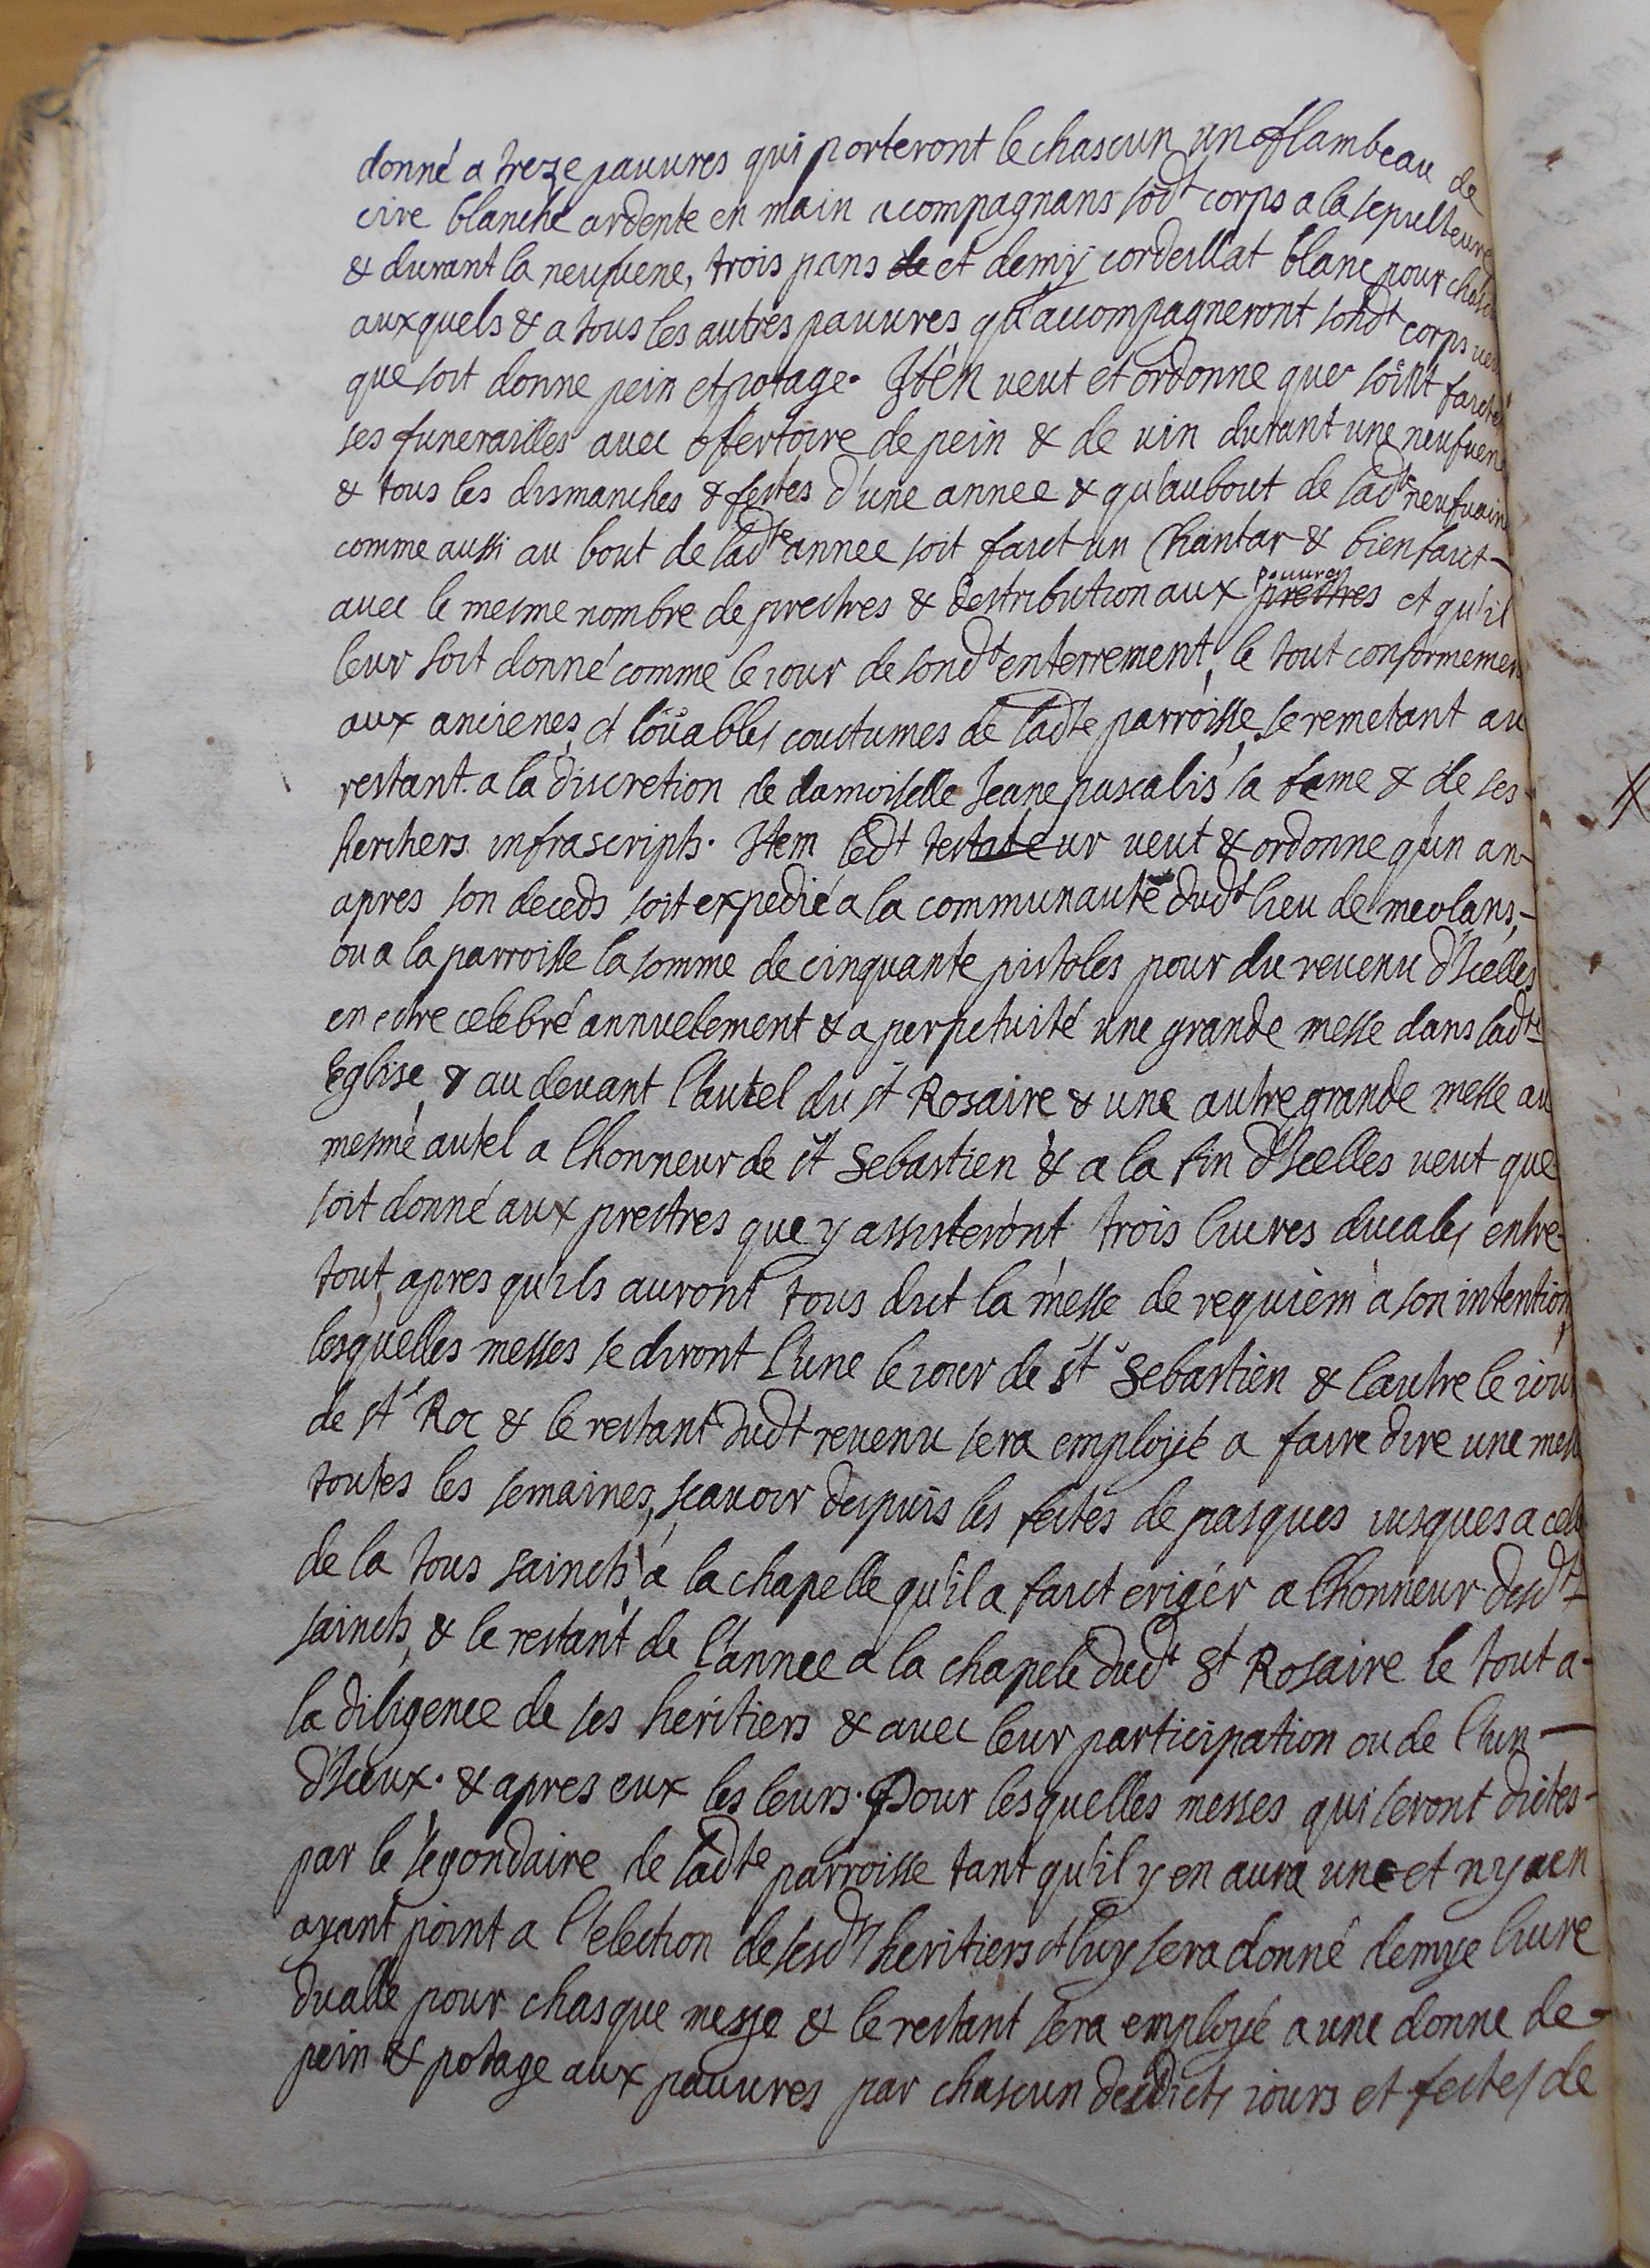 donné a treze pauvres qui porteront le chascun un flambeau de
cire blanche ardente en main acompagnans sodt corps a la sepulteure
& durant la neufvene, trois pans de et demy cordeillat blanc pour chascu
auxquels & a tous les autres pauvres qu'accompagneront sondt corps veu
que soit donne pein et potage. Iten veut et ordonne que soint faictes
ses funerailles avec ofertoire de pein & de vin durant une neufvene
& tous les dismanches & festes d'une annee & qu'au bout de ladte neufvaine
comme aussi au bout de ladte annee soit faict un Chantar & bienfaict
avec le mesme nombre de prestres & destribution aux prestres pauvres et qu'il
leur soit donné comme le iour de sondt enterrement, le tout conformemen
aux ancienes, et loüables coustumes de ladte parroisse, se remetant au
restant a la discretion de damoiselle Jeane pascalis sa fame & de ses
heritiers infrascripts. Item ledt testateur veut & ordonne qu'un an
apres son deceds soit expedié a la communauté dudt lieu de meolans,
ou a la parroisse la somme de cinquante pistoles pour du revenu d'Icelles
en estre celebré annuelement & a perpetuité une grande messe dans ladte
Eglise & au devant l'autel du st Rosaire & une autre grande messe au
mesme autel a l'honneur de st Sebastien & a la fin d'Icelles veut que
soit donné aux prestres que y assisteront trois livres ducales entre
tout, apres qu'ils auront tous dict la messe de requiem a son intention,
lesquelles messes se diront l'une le iour de st Sebastien & l'autre le iour
de st Roc & le restant dudt revenu sera employé a faire dire une mess
toutes les semaines, sçavoir despuis les festes de pasques iusques a celle
de la tous saincts a la chapelle qu'il a faict eriger a l'honneur desdts
saincts, & le restant de l'annee a la chapele dudt St Rosaire le tout a
la diligence de ses heritiers & avec leur participation ou de l'un
d'Iceux. & apres eux les leurs. Pour lesquelles messes qui seront dictes
par le segondaire de ladte parroisse tant qu'il y en aura un et n'y aen
ayant point a l'election de sesdts heritiers luy sera donné demye livre
dualle pour chasque messe & le restant sera employé a une donne de
pein & potage aux pauvres par chascun desdicts iours et festes de